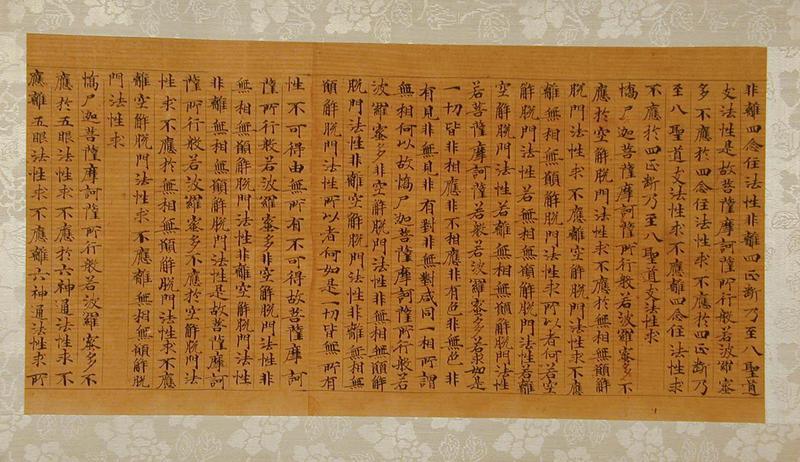 非離四念住法性非離四正斷乃至八聖道
支法性是故菩薩摩訶薩所行般若波羅蜜
多不應於四念住法性求不應於四正斷乃
至八聖道支法性求不應離四念住法性求
不應於四正斷乃至八聖道支法性求
憍尸迦菩薩摩訶薩所行般若波羅蜜多不
應於空解脫門法性求不應於無相無願解
脫門法性求不應離空解脫門法性求不應
離無相無願解脫門法性求所以者何若空
解脫門法性若無相無願解脫門法性若離
空解脫門法性若離無相無願解脫門法性
若菩薩摩訶薩若般若波羅蜜多若求如是
一切皆非相應非不相應非有色非無色非
有見非無見非有對非無對咸同一相所謂
無相何以故憍尸迦菩薩摩訶薩所行般若
波羅蜜多非空解脫門法性非無相無願解
脫門法性非離空解脫門法性非離無相無
願解脫門法性所以者何如是一切皆無所有
性不可得由無所有不可得故菩薩摩訶
薩所行般若波羅蜜多非空解脫門法性非
無相無願解脫門法性非離空解脫門法性
非離無相無願解脫門法性是故菩薩摩訶
薩所行般若波羅蜜多不應於空解脫門法
性求不應於無相無願解脫門法性求不應
離空解脫門法性求不應離無相無願解脫
門法性求
憍尸迦菩薩摩訶薩所行般若波羅蜜多不
應於五眼法性求不應於六神通法性求不
應離五眼法性求不應離六神通法性求所